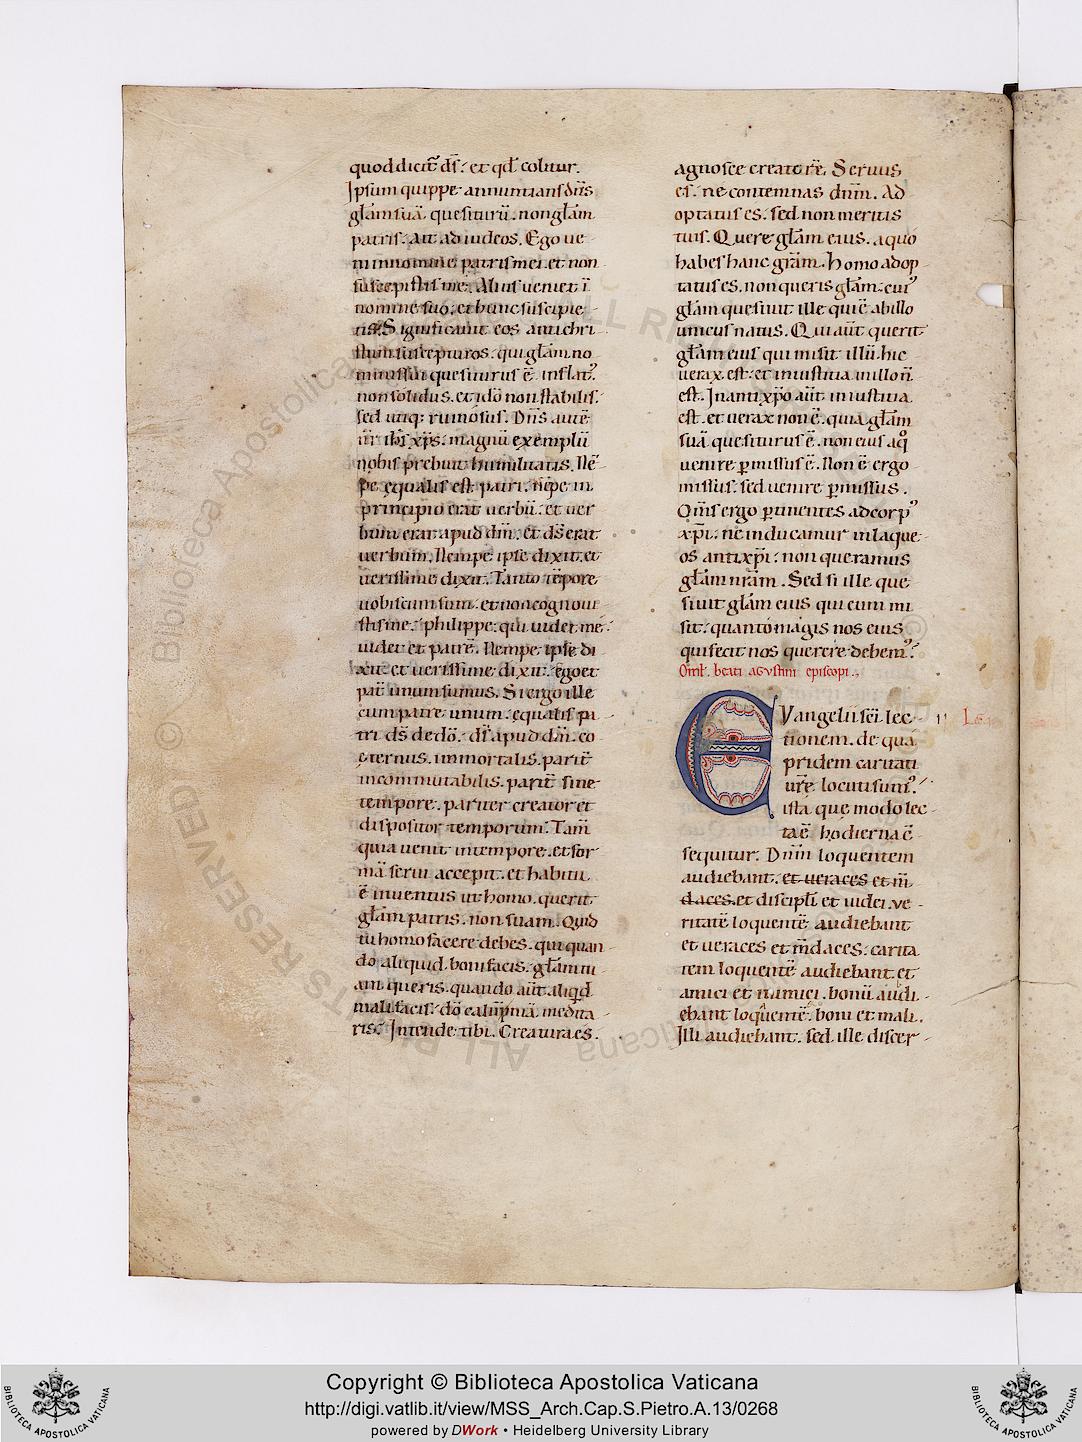 quod dicit᷑ d̄s. et qd̄ colitur.
Ipsum quippe annuntians dn̄s
gl̄am suā quesiturū. non gl̄am
patris. Ait ad iudeos. Ego ue
ni in nomine patris mei. et non
suscepistis me. Alius ueniet ī
nomine suo. et hunc suscipie
tis. Significauit eos antichri
stum suscepturos. qui gl̄am no
minis sui quesiturus ē. inflatꝰ.
non solidus. et idō non stabilis.
sed utiq; ruinosus. Dn̄s autē
nr̄ ih̄s xp̄s. magnū exemplū
nobis prebuit humilitatis. Nē
pe ęqualis est patri. nēpe in
principio erat uerbū. et uer
bum erat apud dm̄. et d̄s erat
uerbum. Nempe ipse dixit. et
uerissime dixit. Tanto tēpore
uobiscum sum. et non cognoui
stis me. philippe. qui uidet me.
uidet et patrē. Nempe ipse di
xit. et uerissime dixit. ego et
pat᷑ unum sumus. Si ergo ille
cum patre unum. equalis pa
tri. d̄s de dō. d̄s apud dm̄. co
ęternus. immortalis. parit᷑
incommutabilis. parit᷑ sine
tempore. pariter creator et
dispositor temporum. Tam̄
quia uenit in tempore. et for
mā serui accepit. et habitu
ē inuentus ut homo. querit
gl̄am patris. non suam. Quid
tu homo facere debes. qui quan
do aliquid boni facis. gl̄am tu
am queris. quando aūt aliqd̄
mali facis. dō calūpniā medita
ris. Intende tibi. Creatura es.
agnosce creatorē. Seruus
es. ne contemnas dnm̄. Ad
optatus es. sed non meritis
tuis. Quere gl̄am eius. a quo
habes hanc gr̄am. homo adop
tatus es. non queris gl̄am. cuiꝰ
gl̄am quesiuit ille qui ē ab illo
unicus natus. Qui aūt querit
gl̄am eius qui misit illū. hic
uerax est. et iniustitia in illo n̄
est. In antixp̄o aūt iniustitia
est. et uerax non ē. quia gl̄am
suā quesiturus ē. non eius a qͦ
uenire ꝑmissus ē. Non ē ergo
missus. sed uenire ꝑmissus.
Om̄s ergo ꝑtinentes ad corpꝰ
xp̄i. ne inducamur in laque
os antixp̄i. non queramus
gl̄am nr̄am. Sed si ille que
siuit gl̄am eius qui eum mi
sit. quanto magis nos eius
qui fecit nos querere debemꝰ.
Oml̄. beati agustini episcopi.
Euangelii sc̄i lec
tionem. de qua
pridem caritati
ur̄ę locuti sumꝰ.
ista que modo lec
ta ē hodierna ē
sequitur. Dnm̄ loquentem
audiebant. et ueraces et m̄
daces. et discipli et iudei. ue
ritatē loquentē audiebant
et ueraces et m̄daces. carita
tem loquentē audiebant. et
amici et inimici. bonū audi
ebant loquentē. boni et mali.
Illi audiebant. sed ille discer
BIBLIOTECA APOSTOLICA VATICANA
Copyright © Biblioteca Apostolica Vaticana
http://digi.vatlib.it/view/MSS_Arch.Cap.S.Pietro.A.13/0268
powered by DWork • Heidelberg University Library
BIBLIOTECA APOSTOLICA VATICANA